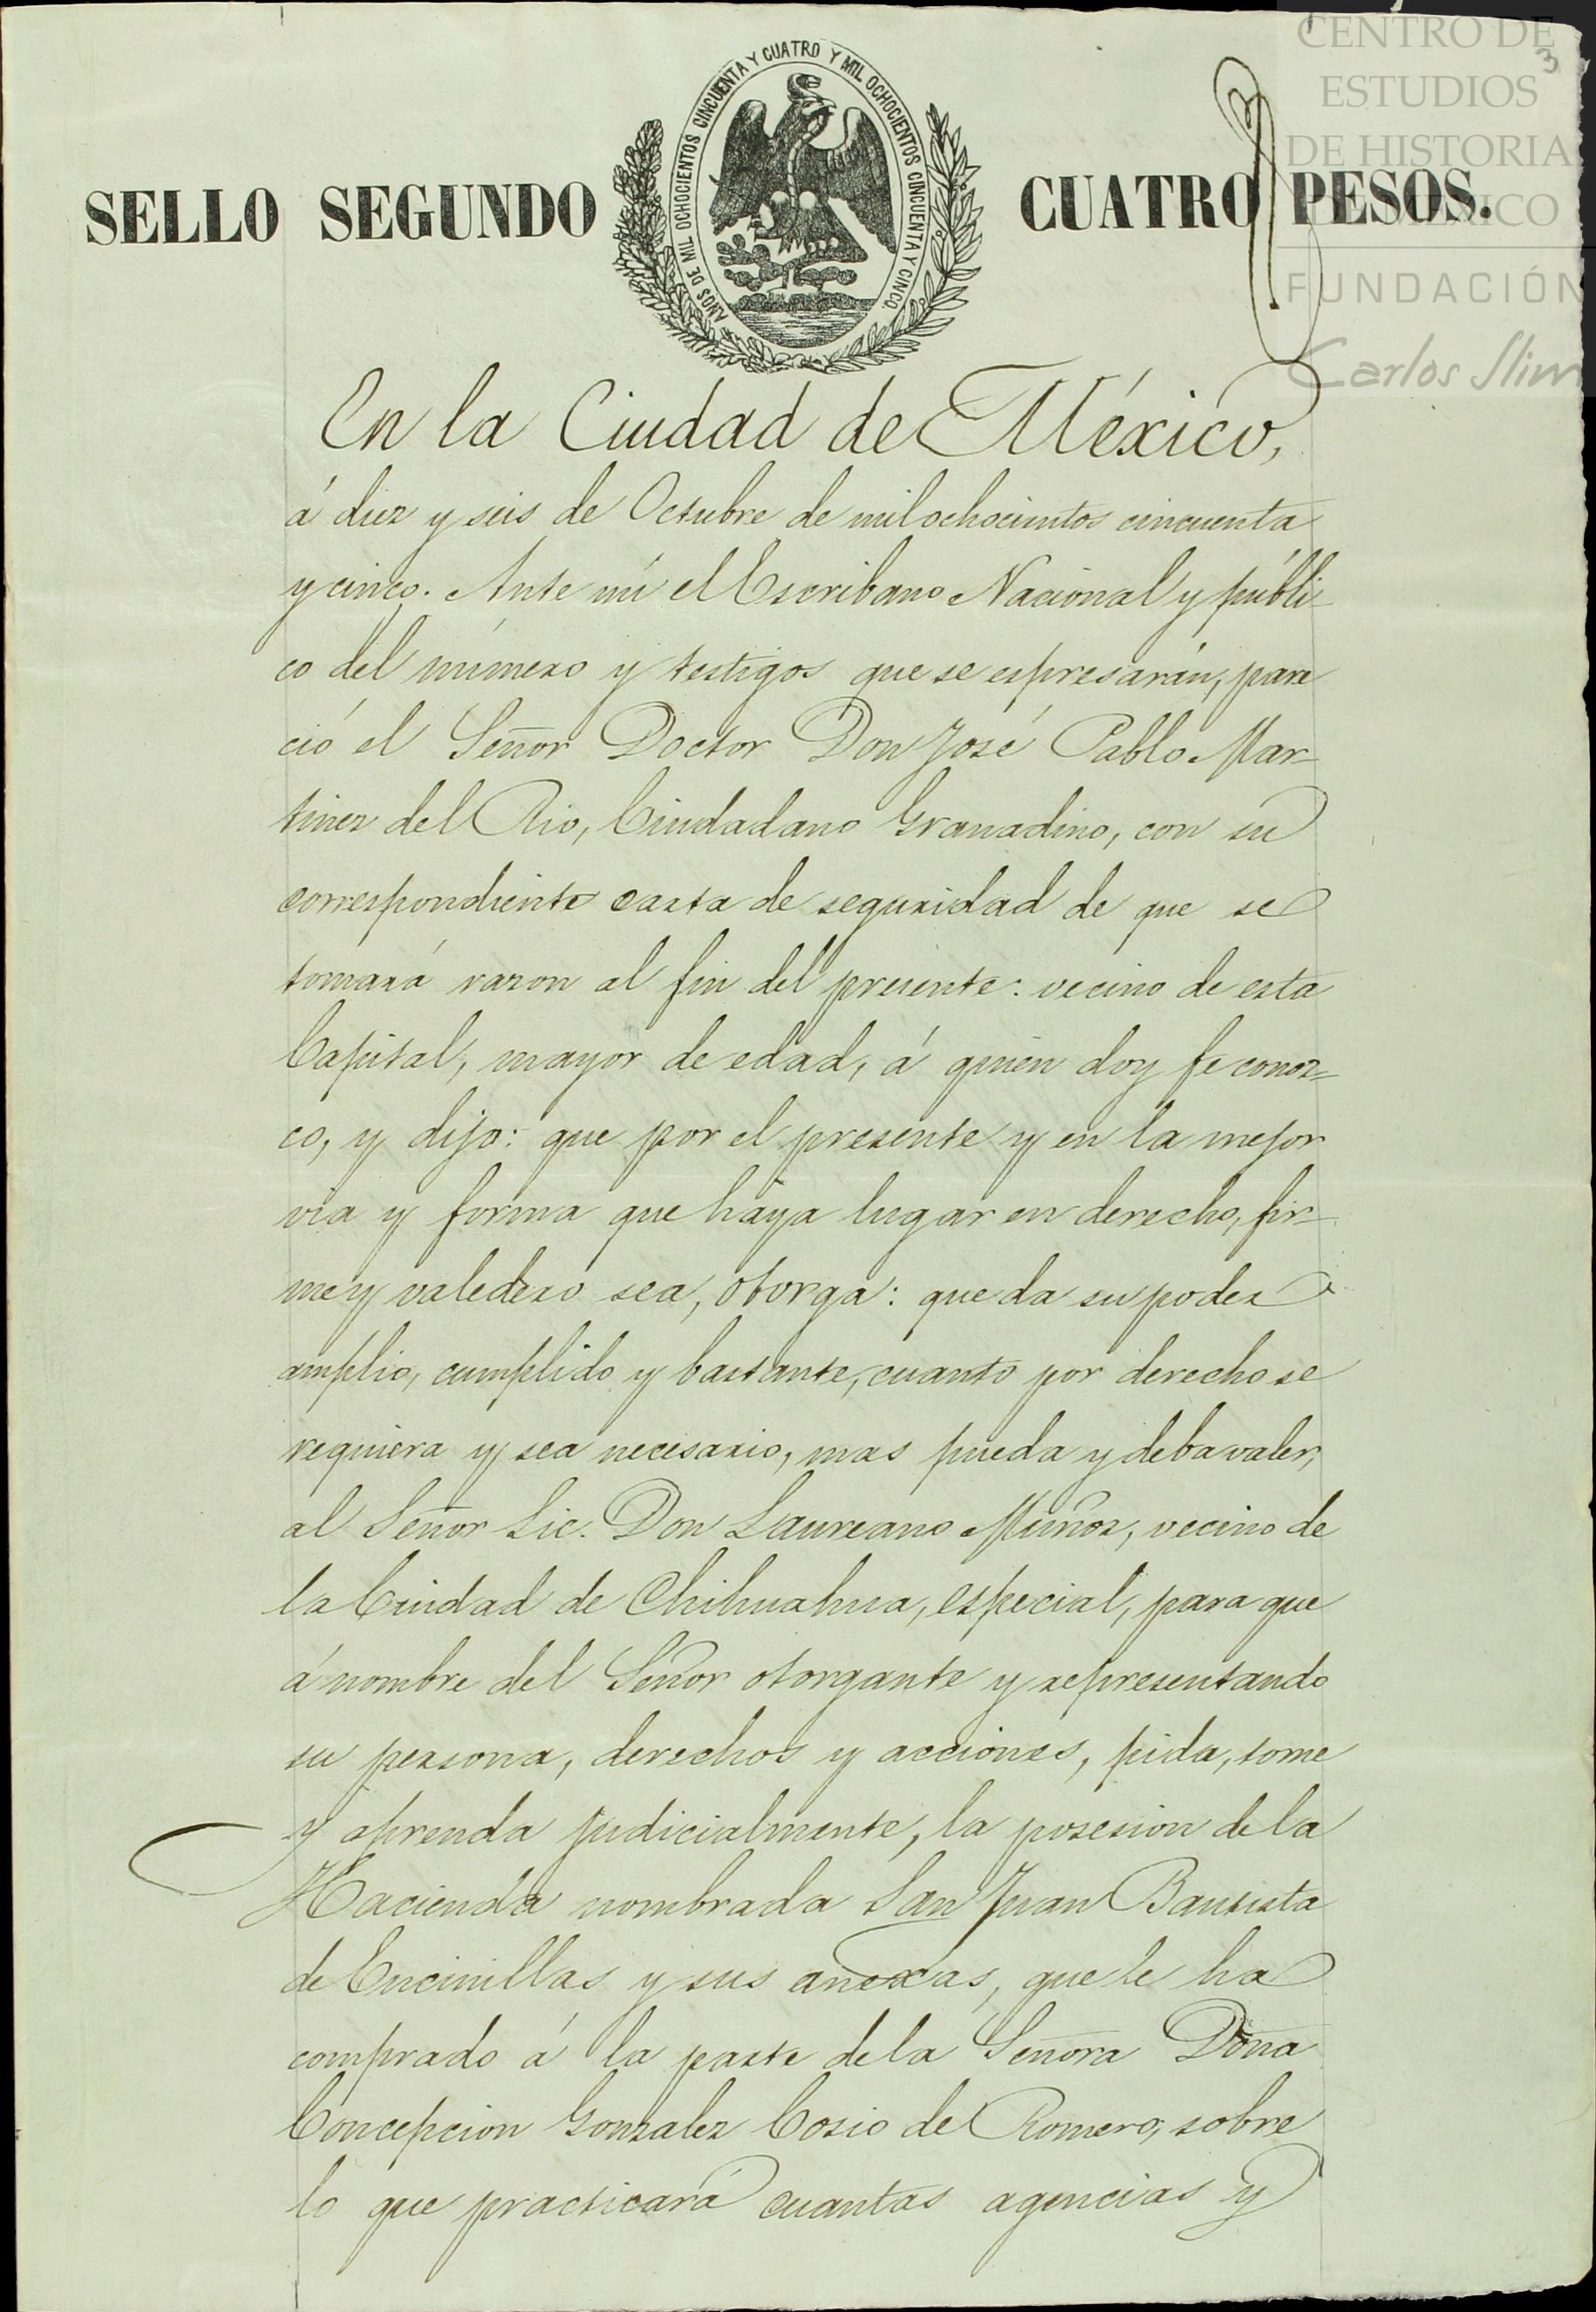 CENTRO DE
ESTUDIOS
DE HISTORIA
DE MÉXICO
FUNDACIÓN
Carlos Slim
3
AÑOS DE MIL OCHOCIENTOS CINCUENTA Y CUATRO Y MIL OCHOCIENTOS CINCUENTA Y CINCO
SELLO SEGUNDO CUATRO PESOS.
En la Ciudad de México,
á diez y seis de Octubre de mil ochocientos cincuenta
y cinco. Ante mí el Escribano Nacional y públi-
co del número y testigos que se espresarán, pare
ció el Señor Doctor Don José Pablo Mar-
tinez del Rio, Ciudadano Granadino, con su
correspondiente carta de seguridad de que se
tomará razon al fin del presente: vecino de esta
Capital, mayor de edad, á quien doy fe conoz=
co, y dijo: que por el presente y en la mejor
via y forma que haya lugar en derecho, fir-
me y valedero sea, otorga: que da su poder
amplio, cumplido y bastante, cuanto por derecho se
requiera y sea necesario, mas pueda y deba valer,
al Señor Lic. Don Laureano Muñoz, vecino de
la Ciudad de Chihuahua, especial, para que
á nombre del Señor otorgante y representando
su persona, derechos y acciones, pida, tome
y aprenda judicialmente, la posesion de la
Hacienda nombrada San Juan Bautista
de Encinillas y sus anexas, que le ha
comprado á la parte de la Señora Doña
Concepcion Gonzalez Cosio de Romero, sobre
lo que practicará cuantas agencias y